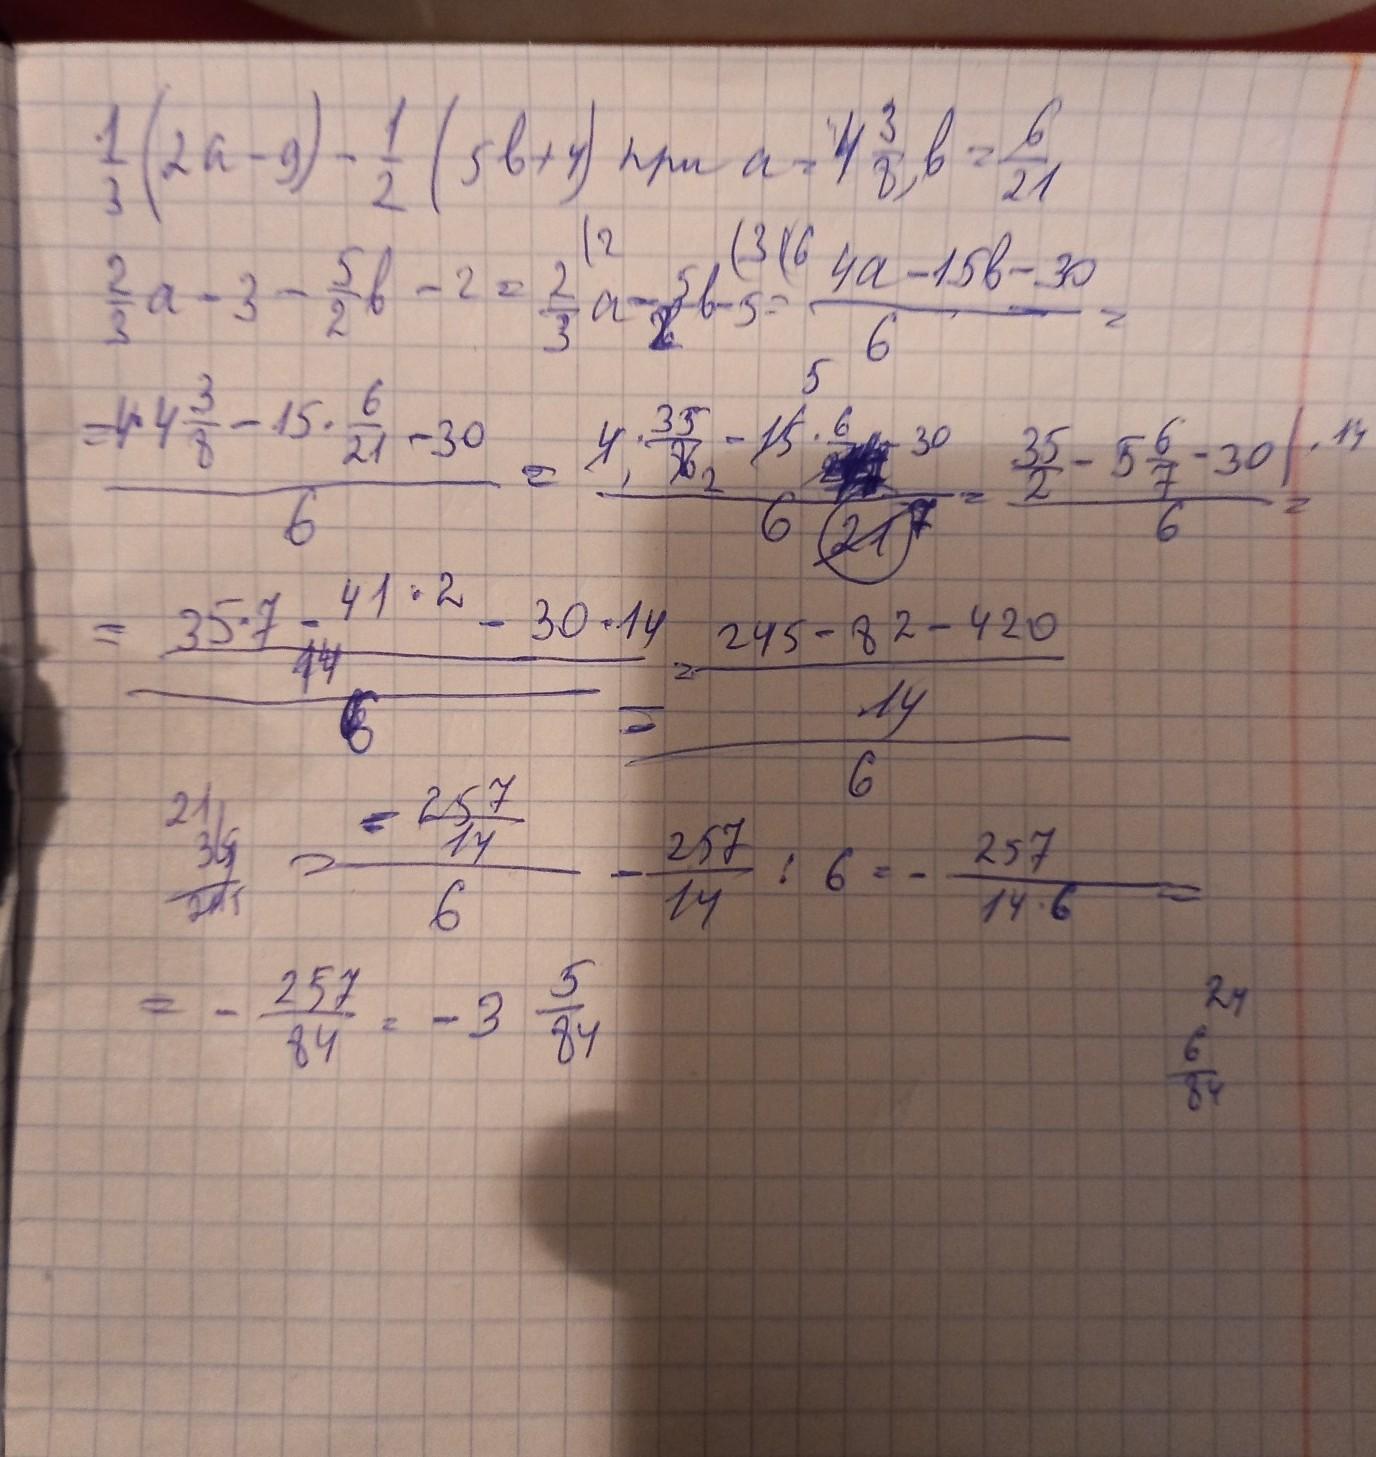 1/3 (2a - 9) - 1/2 (5b + 4) при a = 4 3/8, b = 6/21
2/3 a - 3 - 5/2 b - 2 = 2/3 (2 a - 5/2 b (3 - 5 (6 = (4a - 15b - 30)/6 =
= (4 · 4 3/8 - 15 · 6/21 - 30)/6 = (4 · 35/8 2 - 15 5 · 6/21 7 - 30)/6 = (35/2 - 5 6/7 - 30)/6 | · 14 =
= ((35·7 - 41·2 - 30·14)/14)/6 = = ((245 - 82 - 420)/14)/6
21 = (- 257/14)/6 - 257/14 : 6 = - 257/(14·6) =
= - 257/84 = - 3 5/84
24
6/84